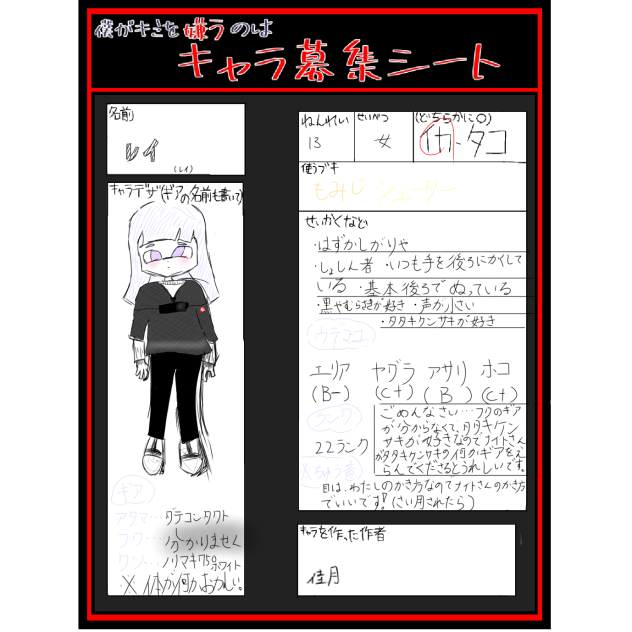 僕がキミを嫌うのは
キャラ募集シート
名前
レイ
(レイ)
ねんれい
13
せいべつ
女
(どちらかに〇)
イカ・タコ
使うブキ
もみじシューター
キャラデザ(ギアの名前も書いて)
せいかくなど
・はずかしがりや
・しょしん者 ・いつも手を後ろにかくして
いる ・基本後ろでぬっている
・黒やむらさきが好き ・声が小さい
・タタキケンサキが好き
ウデマエ
エリア ヤグラ アサリ ホコ
(B-) (C+) (B) (C+)
ランク
22ランク
※ちゅう意
ごめんなさい…フクのギア
が分からなくて、タタキケン
サキが好きなのでナイトさん
がタタキケンサキの何かギアをえ
らんでくださるとうれしいです。
目は、わたしのかき方なのでナイトさんのかき方
でいいです!(さい用されたら)
ギア
アタマ…ダテコンタクト
フク…分かりませく
クツ…ノリマキ750ホワイト
※体が何かおかしい。
キャラを作った作者
佳月